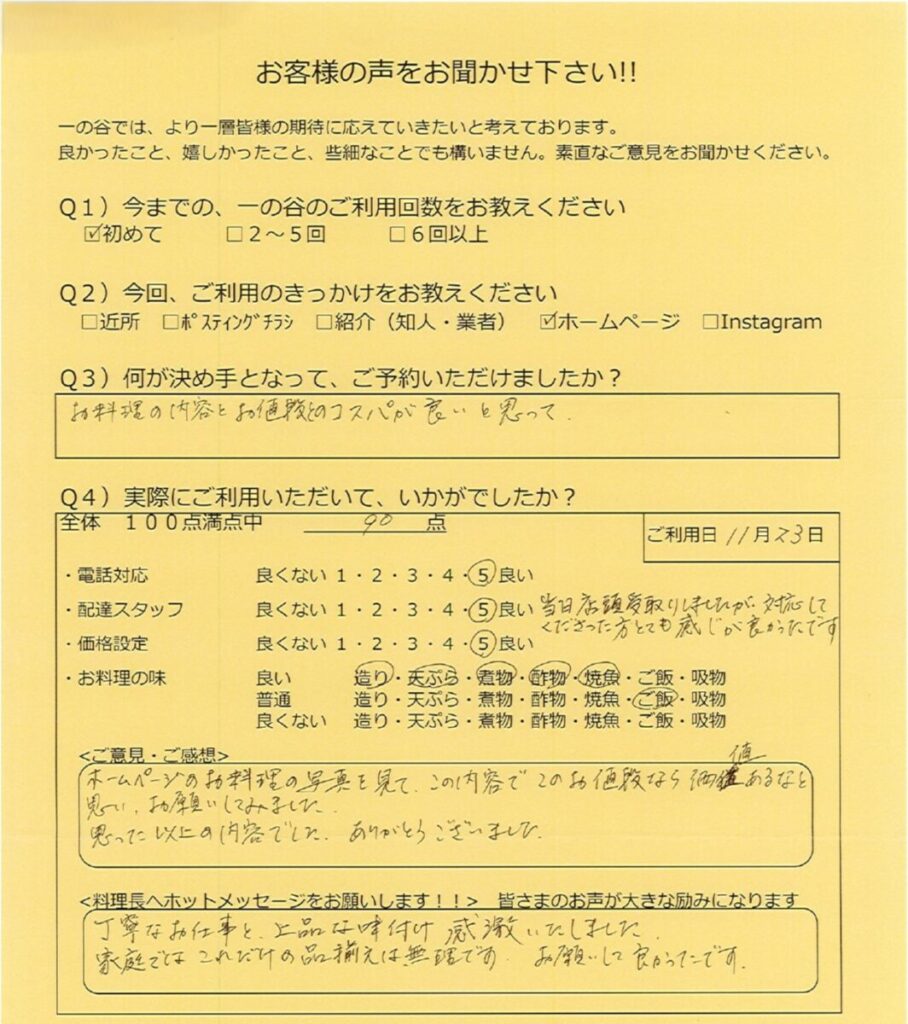 お客様の声をお聞かせ下さい!!
一の谷では、より一層皆様の期待に応えていきたいと考えております。
良かったこと、嬉しかったこと、些細なことでも構いません。素直なご意見をお聞かせください。
Q1）今までの、一の谷のご利用回数をお教えください
☑初めて □２～５回 □６回以上
Q2）今回、ご利用のきっかけをお教えください
□近所 □ﾎﾟｽﾃｨﾝｸﾞﾁﾗｼ □紹介（知人・業者） ☑ホームページ □Instagram
Q3）何が決め手となって、ご予約いただけましたか？
お料理の内容とお値段とのコスパが良いと思って.
Q4）実際にご利用いただいて、いかがでしたか？
全体 １００点満点中 90 点
ご利用日 11月23日
・電話対応 良くない 1・2・3・4・⑤良い
・配達スタッフ 良くない 1・2・3・4・⑤良い 当日店頭受取りしましたが、対応して
くださった方とても感じが良かったです
・価格設定 良くない 1・2・3・4・⑤良い
・お料理の味 良い 造り・天ぷら・煮物・酢物・焼魚・ご飯・吸物
普通 造り・天ぷら・煮物・酢物・焼魚・ご飯・吸物
良くない 造り・天ぷら・煮物・酢物・焼魚・ご飯・吸物
<ご意見・ご感想>
ホームページのお料理の写真を見て、この内容でこのお値段なら価値あるなと
思い、お願いしてみました.
思った以上の内容でした. ありがとうございました.
<料理長へホットメッセージをお願いします！！> 皆さまのお声が大きな励みになります
丁寧なお仕事と、上品な味付け 感激いたしました.
家庭ではこれだけの品揃えは無理です. お願いして良かったです.